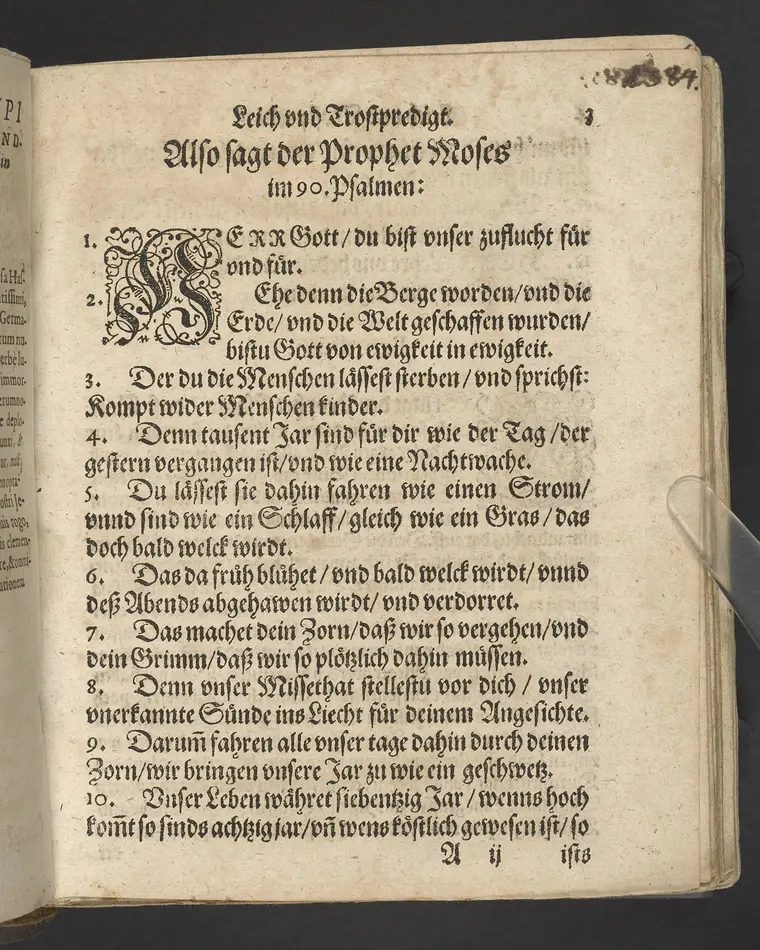 Leich vnd Trostpredigt. 3
Also sagt der Prophet Moses
im 90. Psalmen:
1. HERR Gott / du bist vnser zuflucht für
vnd für.
2. Ehe denn die Berge worden/ vnd die
Erde/ vnd die Welt geschaffen wurden/
bistu Gott von ewigkeit in ewigkeit.
3. Der du die Menschen lässest sterben / vnd sprichst:
Kompt wider Menschen kinder.
4. Denn tausent Jar sind für dir wie der Tag / der
gestern vergangen ist/ vnd wie eine Nachtwache.
5. Du lässest sie dahin fahren wie einen Strom/
vnnd sind wie ein Schlaff/ gleich wie ein Gras / das
doch bald welck wirdt.
6. Das da früh blühet / vnd bald welck wirdt/ vnnd
deß Abends abgehawen wirdt/ vnd verdorret.
7. Das machet dein Zorn/ daß wir so vergehen/ vnd
dein Grimm/ daß wir so plötzlich dahin müssen.
8. Denn vnser Missethat stellestu vor dich / vnser
vnerkannte Sünde ins Liecht für deinem Angesichte.
9. Darum̄ fahren alle vnser tage dahin durch deinen
Zorn/ wir bringen vnsere Jar zu wie ein geschwetz.
10. Vnser Leben währet siebentzig Jar / wenns hoch
kom̄t so sinds achtzig jar/ vn̄ wens köstlich gewesen ist/ so
A ij ists